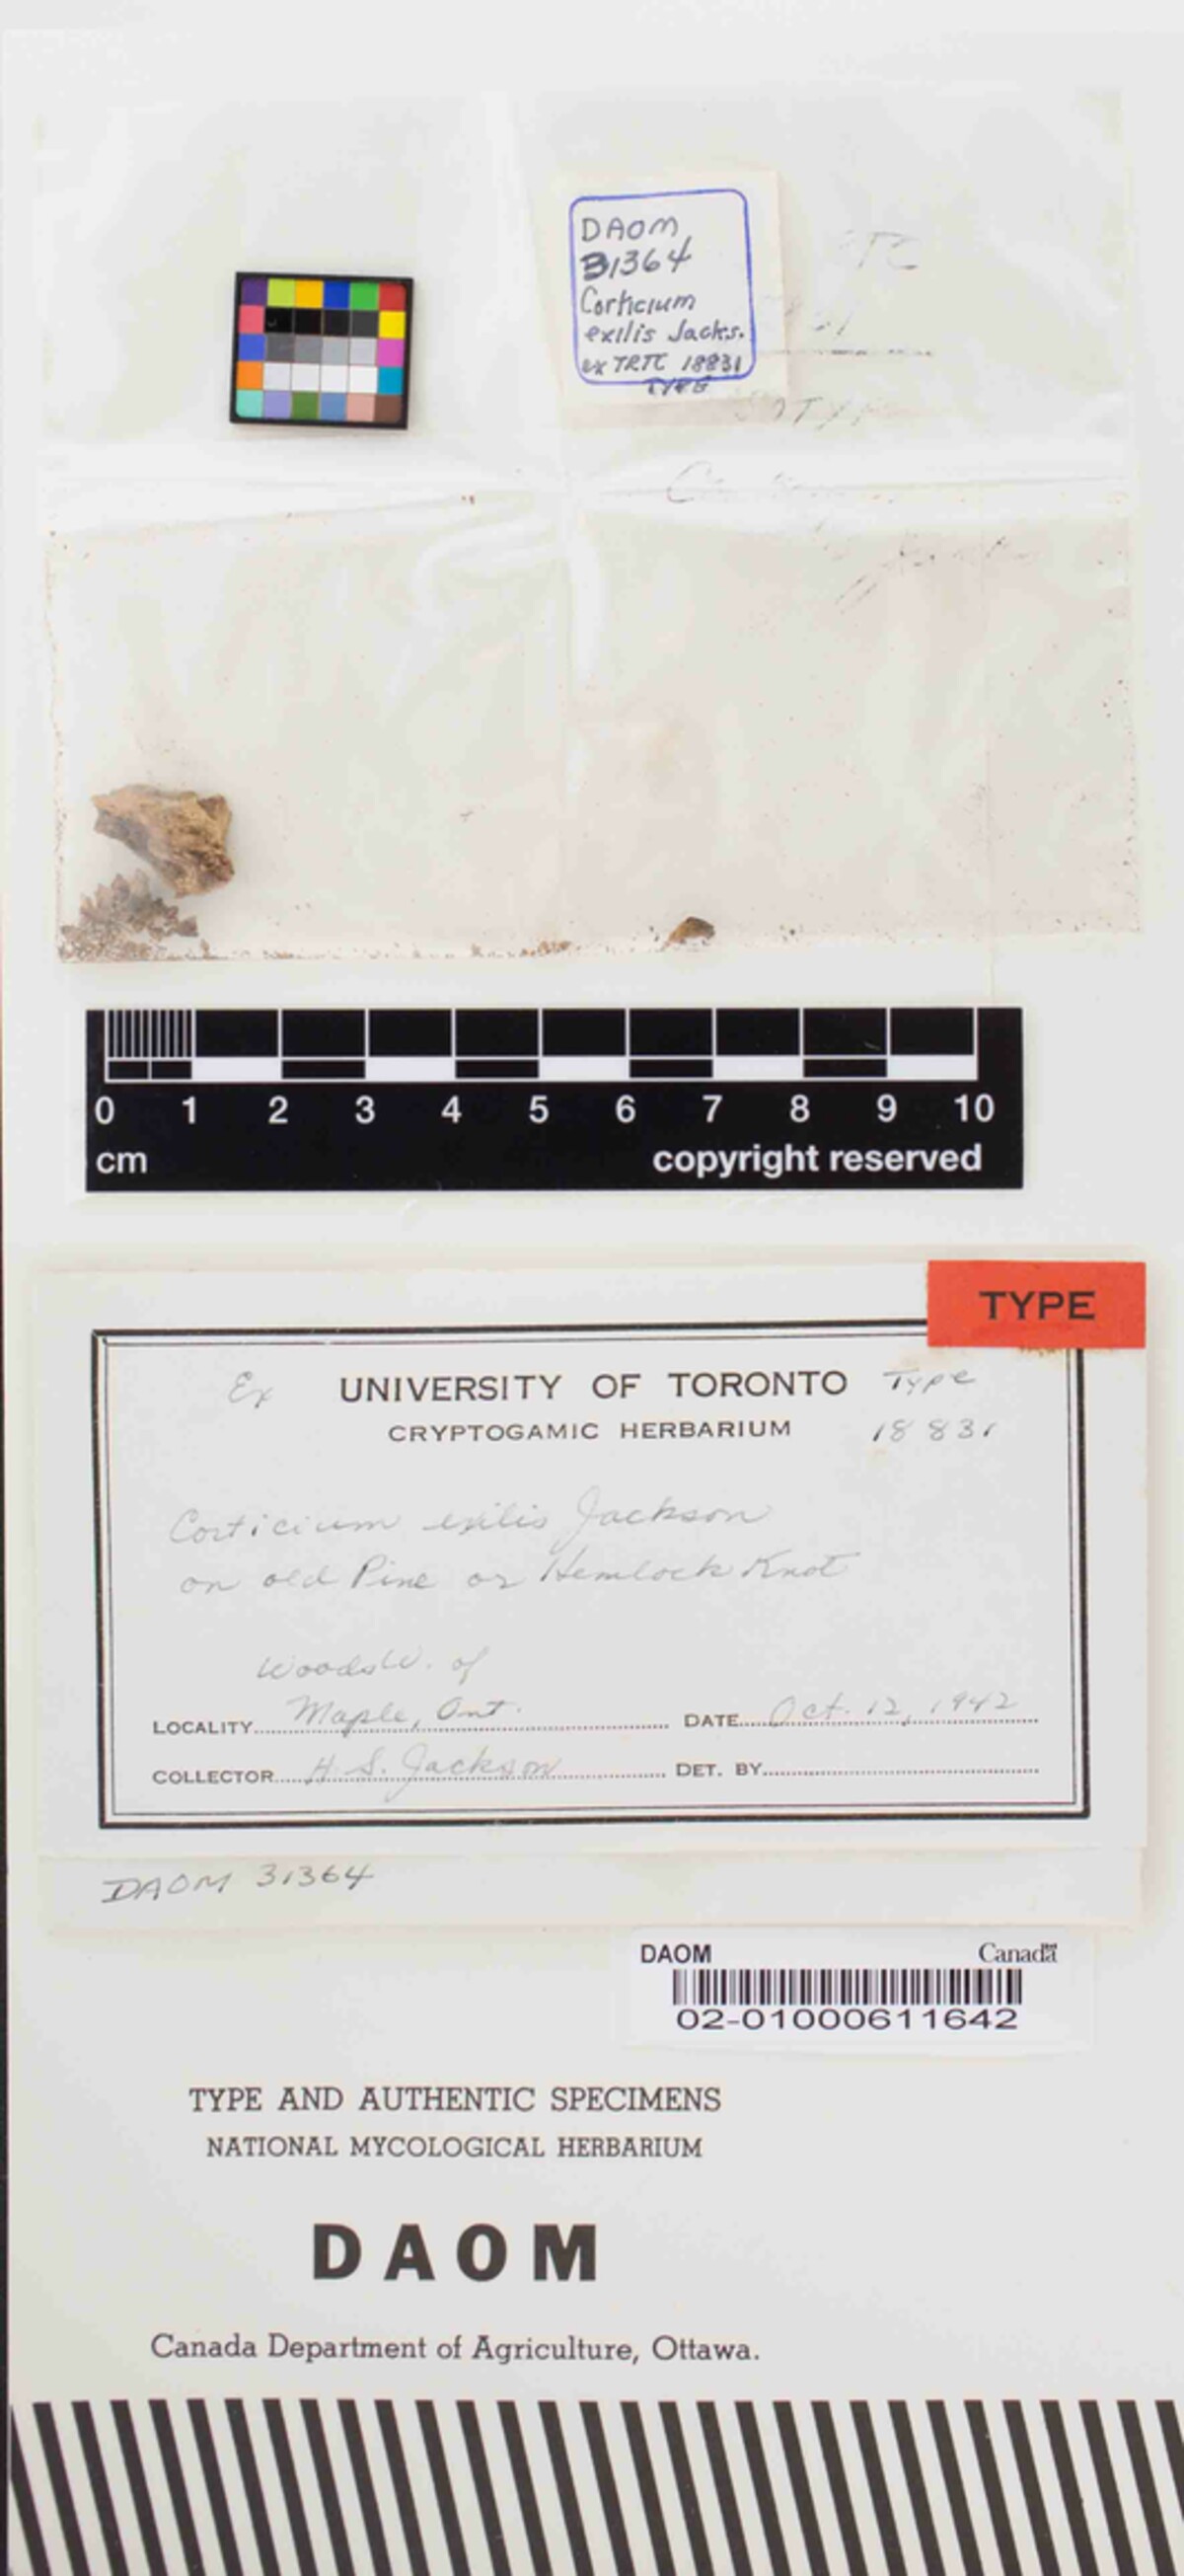 DAOM
31364
Corticium
exilis Jacks.
ex TRTC 18831
TYPE
0 1 2 3 4 5 6 7 8 9 10
cm copyright reserved
TYPE
Ex UNIVERSITY OF TORONTO Type
CRYPTOGAMIC HERBARIUM 18831
Corticium exilis Jackson
on old Pine or Hemlock Knot
Woods W. of
LOCALITY Maple, Ont. DATE Oct. 12, 1942
COLLECTOR H. S. Jackson DET. BY
DAOM 31364
DAOM Canada
02-01000611642
TYPE AND AUTHENTIC SPECIMENS
NATIONAL MYCOLOGICAL HERBARIUM
DAOM
Canada Department of Agriculture, Ottawa.